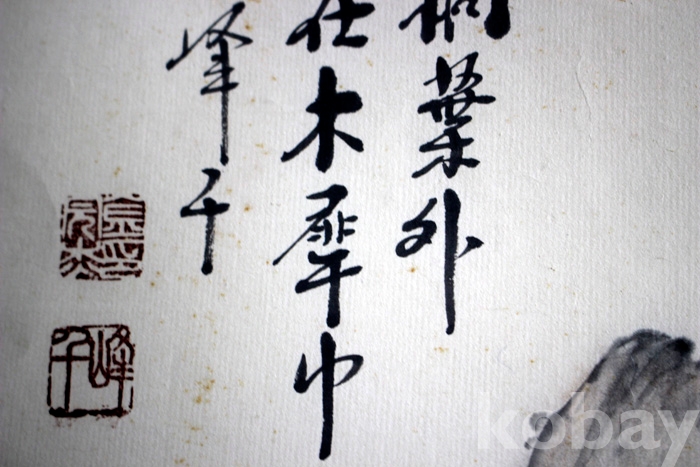 葉外
在木犀中
峰千
峰千
kobay